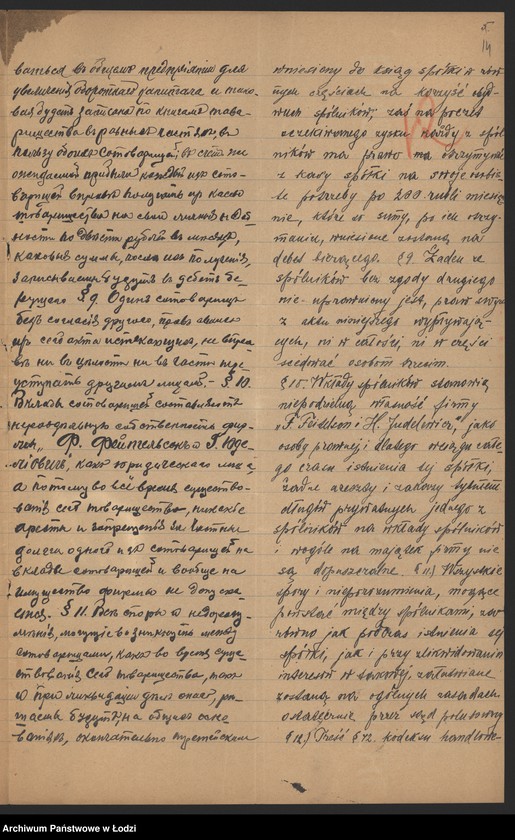 ваться въ общемъ предпріятіи для
увеличенія оборотнаго капитала и тако-
выя будутъ записаны по книгамъ това-
рищества въ равныхъ частяхъ въ
пользу обоихъ сотоварищей; въ счетъ же
ожидаемой прибыли каждый изъ сото-
варищей вправѣ получать изъ кассы
товарищества на свои личныя надоб-
ности по двѣсти рублей въ мѣсяцъ,
каковыя суммы, послѣ ихъ полученія,
записываемы будутъ въ дебетъ те-
кущаго § 9. Одинъ сотоварищъ
безъ согласія другого, правъ своихъ
изъ сего акта истекающихъ, не впра-
вѣ ни въ цѣлости ни въ части пере-
уступать другимъ лицамъ. - § 10.
Вклады сотоварищей составляютъ
нераздѣльную собственность фир-
мы „Ф. Фейтельсонъ и Г. Юде-
ловичъ", какъ юридическаго лица
а потому во всё время существо-
ванія сего товарищества, никакіе
аресты и запрещенія за частные
долги одного изъ сотоварищей на
вклады сотоварищей и вообще на
имущество фирмы не допуска-
емы. § 11. Всѣ споры и недоразу-
мѣнія, могущіе возникнуть между
сотоварищами, какъ во время суще-
ствованія сего товарищества, такъ
и при ликвидаціи дѣлъ онаго, рѣ-
шаемы будутъ, на общихъ осно-
ваніяхъ, окончательно третейскимъ
14
wniesiony do ksiąg spółki w rów-
nych częściach na korzyść obyd-
wuch spólników, zaś na poczet
oczekiwanego zysku każdy z spól-
ników ma prawo na otrzymanie
z kasy spółki na swoje osobis-
te potrzeby po 200 rubli miesięcz-
nie, które to sumy, po ich otrzy-
maniu, wniesione zostaną na
debet bieżącego. § 9. Żaden ze
spólników bez zgody drugiego
nie uprawniony jest, praw swych
z aktu niniejszego wypływają-
cych, ni w całości ni w części
scedować osobom trzecim.
§ 10. Wkłady spólników stanowią
niepodzielną własność firmy
„F. Feitelson i H. Judelowicz", jako
osoby prawnej i dlatego w ciągu całe-
go czasu istnienia tej spółki,
żadne areszty i zakazy tytułem
długów prywatnych jednego z
spólników na wkłady spólników
i wogóle na majątek firmy nie
są dopuszczalne. § 11.) Wszystkie
spory i nieporozumienia, mogące
powstać między spólnikami, za-
równo jak podczas istnienia tej
spółki, jak i przy zlikwidowaniu
interesów takowej, załatwiane
zostaną na ogólnych zasadach
ostatecznie przez sąd polubowny
§ 12.) Treść § 42. kodeksu handlowe-
Archiwum Państwowe w Łodzi